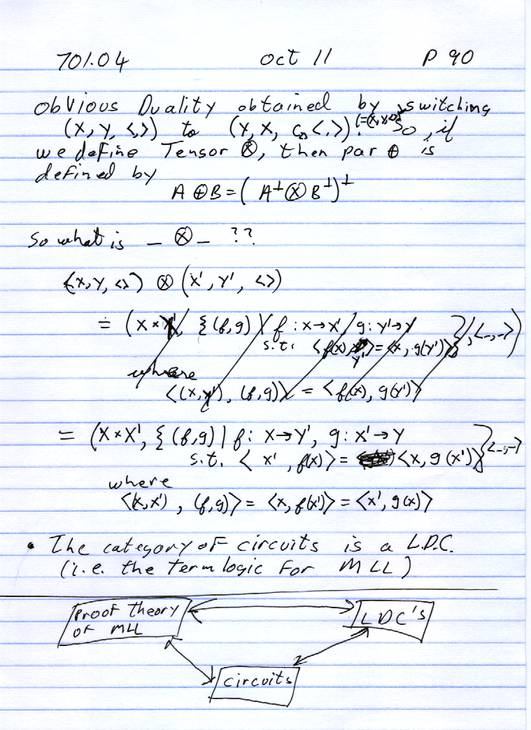 701.04 Oct 11 P 90
Obvious Duality obtained by switching
(X, Y, <,>) to (Y, X, c⊗<,>). So, if
we define Tensor ⊗, then par ⊕ is
defined by
A ⊕ B = (A⊥ ⊗ B⊥)⊥
So what is _ ⊗ _ ??
(X, Y, <>) ⊗ (X', Y', <>)
= (X × X', {(f,g) | f : X→X' g : Y'→Y
s.t. <f(x), Y'> = <x, g(Y')>}, <-,->)
where
<(X, Y'), (f,g)> = <f(x), g(Y')>
= (X × X', {(f,g) | f : X→Y', g : X'→Y
s.t. <x', f(x)> = <x, g(x')>}, <-,->)
where
<(x,x'), (f,g)> = <x, f(x')> = <x', g(x)>
• The category of circuits is a L.D.C.
(i.e. the term logic for MLL)
Proof theory
of MLL
LDC's
circuits